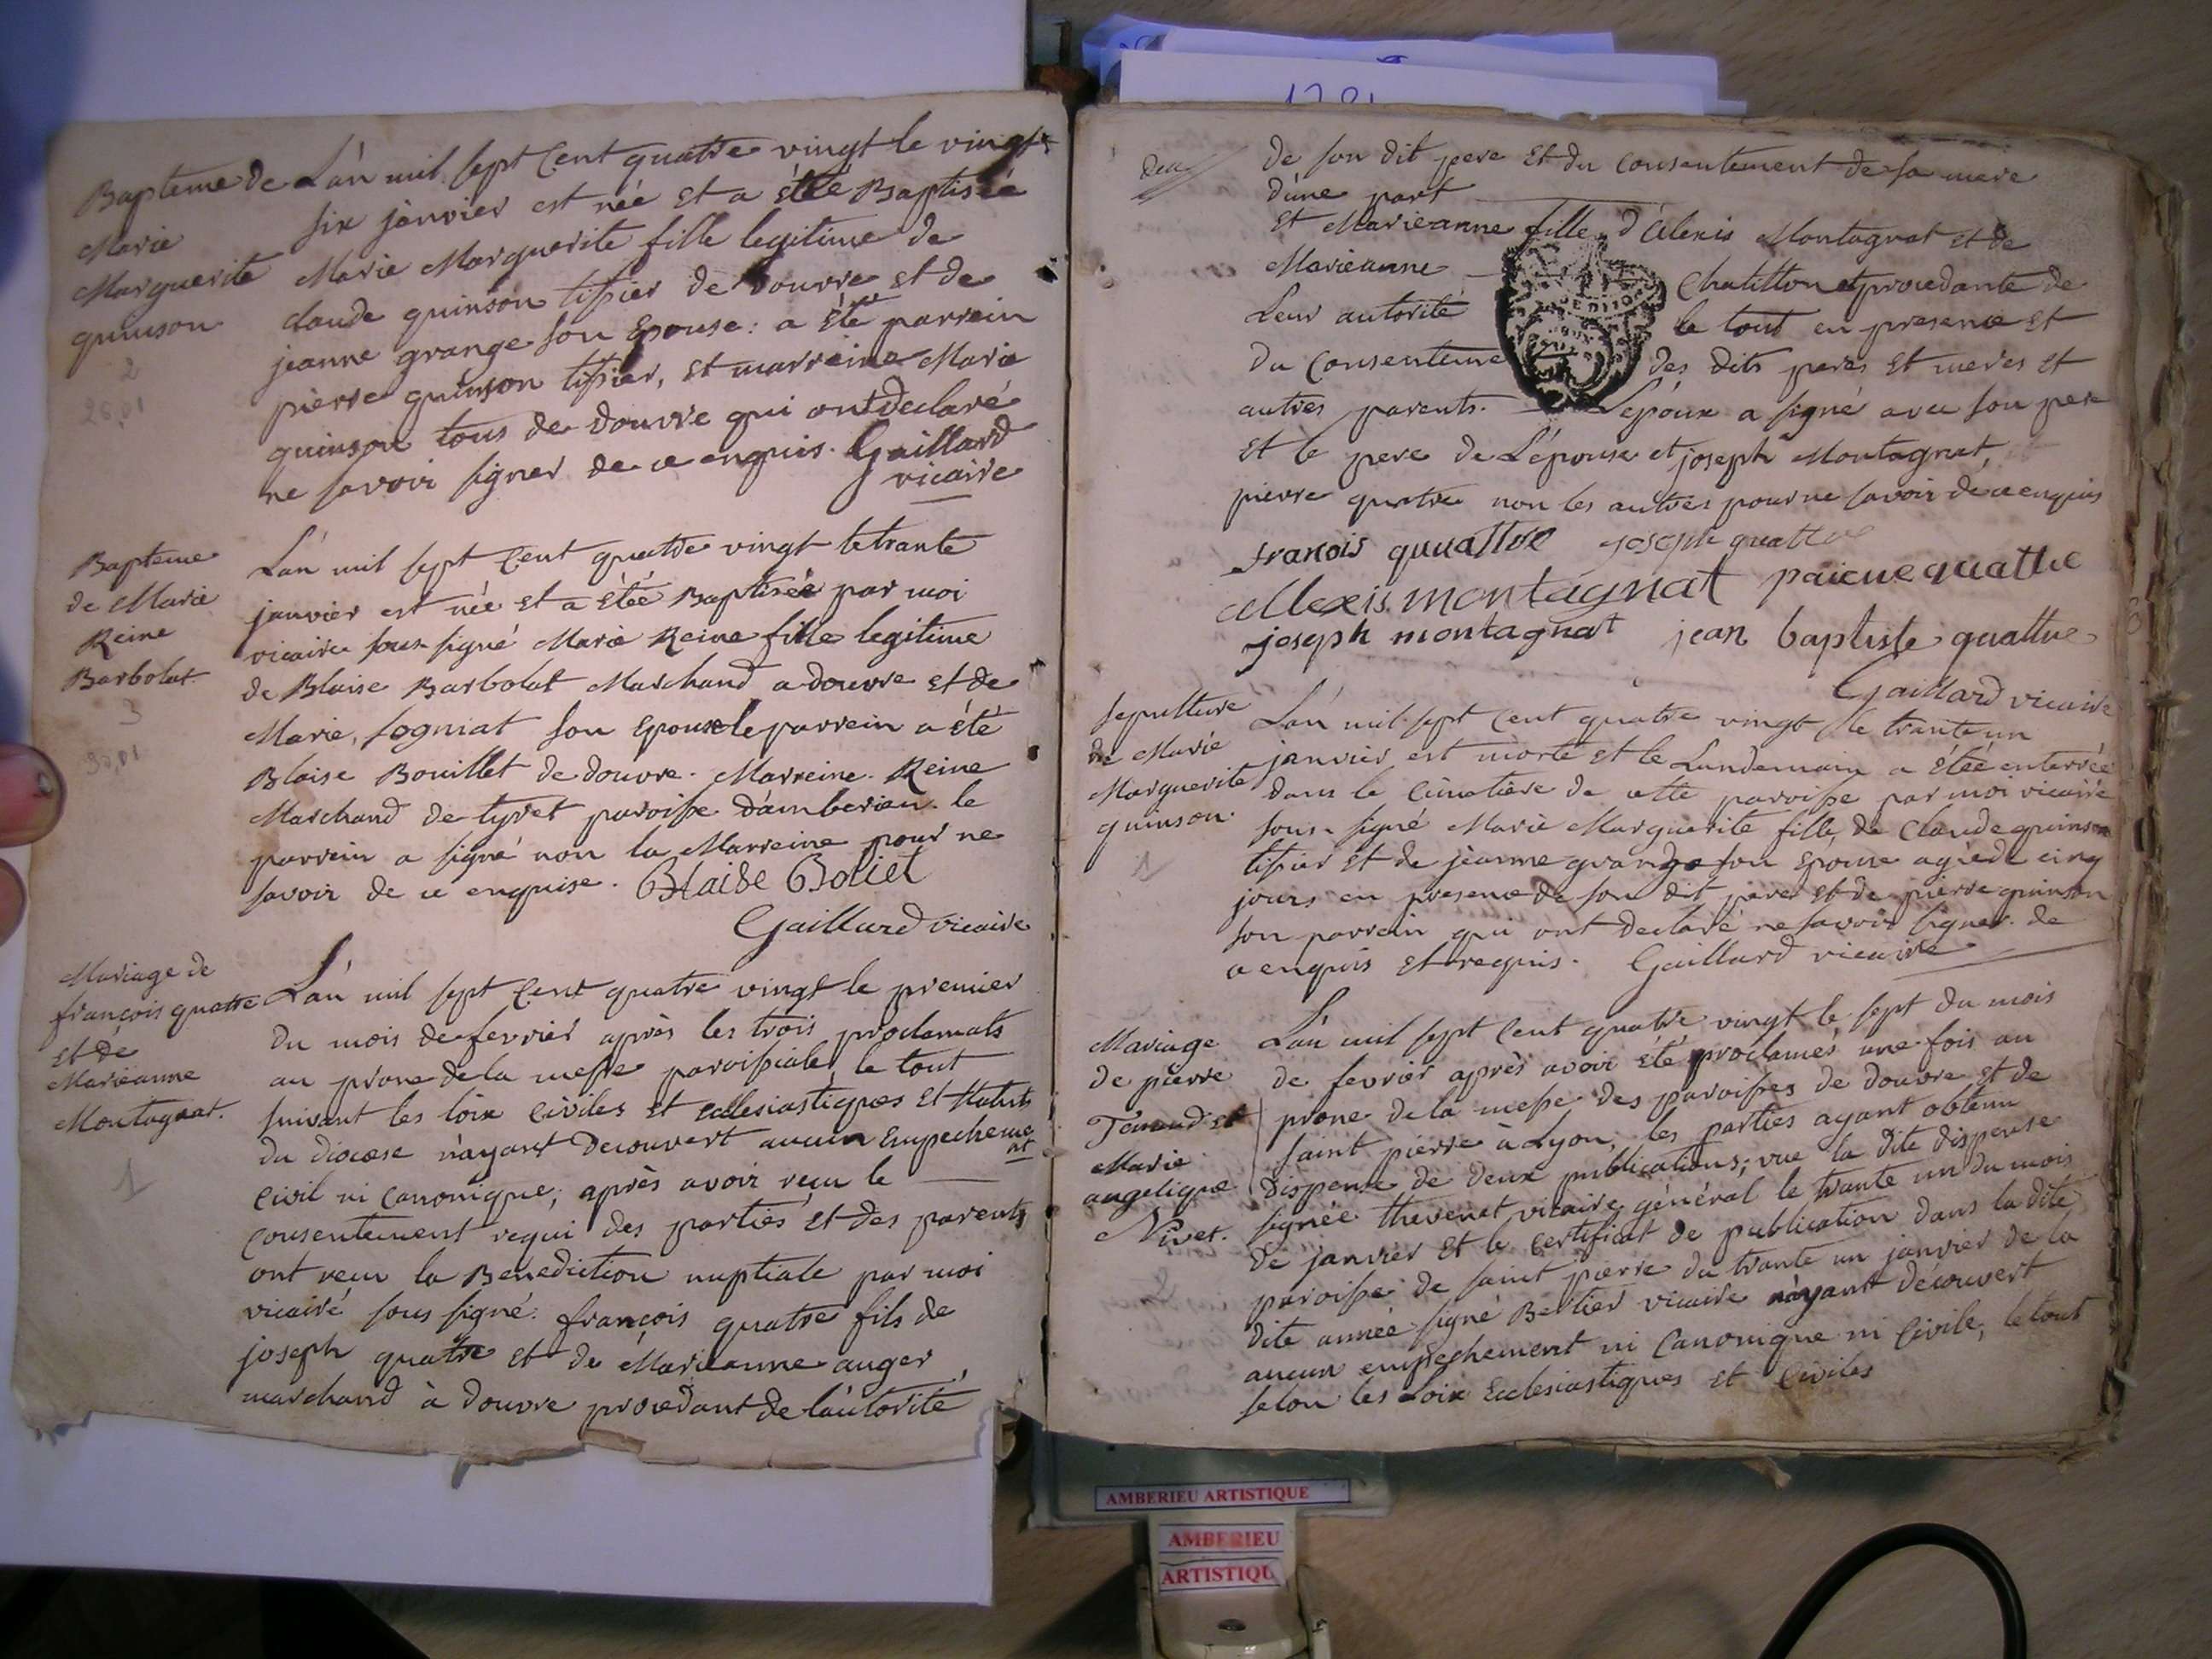 Bapteme de
Marie
Marguerite
quinson
2
26,01
L'an mil sept Cent quatre vingt le vingt
six janvier est née et a étéé Baptisée
Marie Marguerite fille legitime de
claude quinson tissier de Douvre et de
jeanne grange son Epouse: a été parrein
pierre quinson tissier, et marreine Marie
quinson tous de Douvre qui ont declaré
ne savoir signer de ce enquis. Gaillard
vicaire
Bapteme
de Marie
Reine
Barbolat
3
30,01
L'an mil sept Cent quatre vingt le trante
janvier est née et a étéé Baptisée par moi
vicaire sous signé Marie Reine fille legitime
de Blaise Barbolat Marchand a douvre et de
Marie, sogniat son epouse le parrein a été
Blaise Bouillet de douvre. Marreine. Reine
Marchand de tyret paroisse d'amberieu. le
parrein a signé non la Marreine pour ne
savoir de ce enquise. Blaise Boliet
Gaillard vicaire
Mariage de
françois quatre
et de
Marieanne
Montagnat.
1
L'an mil sept Cent quatre vingt le premier
du mois de fevrier après les trois proclamats
au prone de la messe paroissiale, le tout
suivant les loix civiles et ecclesiastiques et statuts
du diocese n'ayant decouvert aucun Empecheme
nt
civil ni canonique, après avoir reçu le
consentement requi des parties et des parents
ont reçu la Benediction nuptiale par moi
vicaire sous signé. françois quatre fils de
joseph quatre et de Marieanne auger,
marchand à douvre procedant de l'autorité
1781
deux
de son dit pere et du consentement de sa mere
d'une part
et Marieanne fille d'Alexis Montagnat et de
Marieanne Chatillon et procedante de
Leur autorité le tout en presence et
du Consenteme des dits peres et meres et
autres parents. L'epoux a signé avec son pere
et le pere de L'épouse et joseph Montagnat,
pierre quatre non les autres pour ne savoir de ce enquis
francois quuattre joseph quattre
allexis montagnat paieue quattre
joseph montagnat jean baptiste quattre
Gaillard vicaire
sepulture
de Marie
Marguerite
quinson.
1
L'an mil sept Cent quatre vingt le trante un
janvier est morte et le Lundemain a étéé enterrée
dans le cimetière de cette paroisse par moi vicaire
sous-signé Marie Marguerite fille de Claude quinson
tissier et de jeanne grange son epouse agée de cinq
jours en presence de son dit pere et de pierre quinson
son parrein qui ont declaré ne savoir signer. de
ce enquis et requis. Gaillard vicaire
Mariage
de pierre
Tenand et
Marie
angelique
Nivet.
L'an mil sept Cent quatre vingt le sept du mois
de fevrier après avoir été proclamés une fois au
prone de la messe des paroisses de douvre et de
saint pierre à Lyon, les parties ayant obtenu
Dispense de deux publications; vue la dite dispense
signée thevenet vicaire général le trante un du mois
de janvier et le certificat de publication dans la dite
paroisse de saint pierre du trante un janvier de la
dite année signé Bertier vicaire n'ayant découvert
aucun empechement ni Canonique ni Civile, le tout
selon les Loix Ecclesiastiques et Civiles
AMBERIEU ARTISTIQUE
AMBERIEU
ARTISTIQU